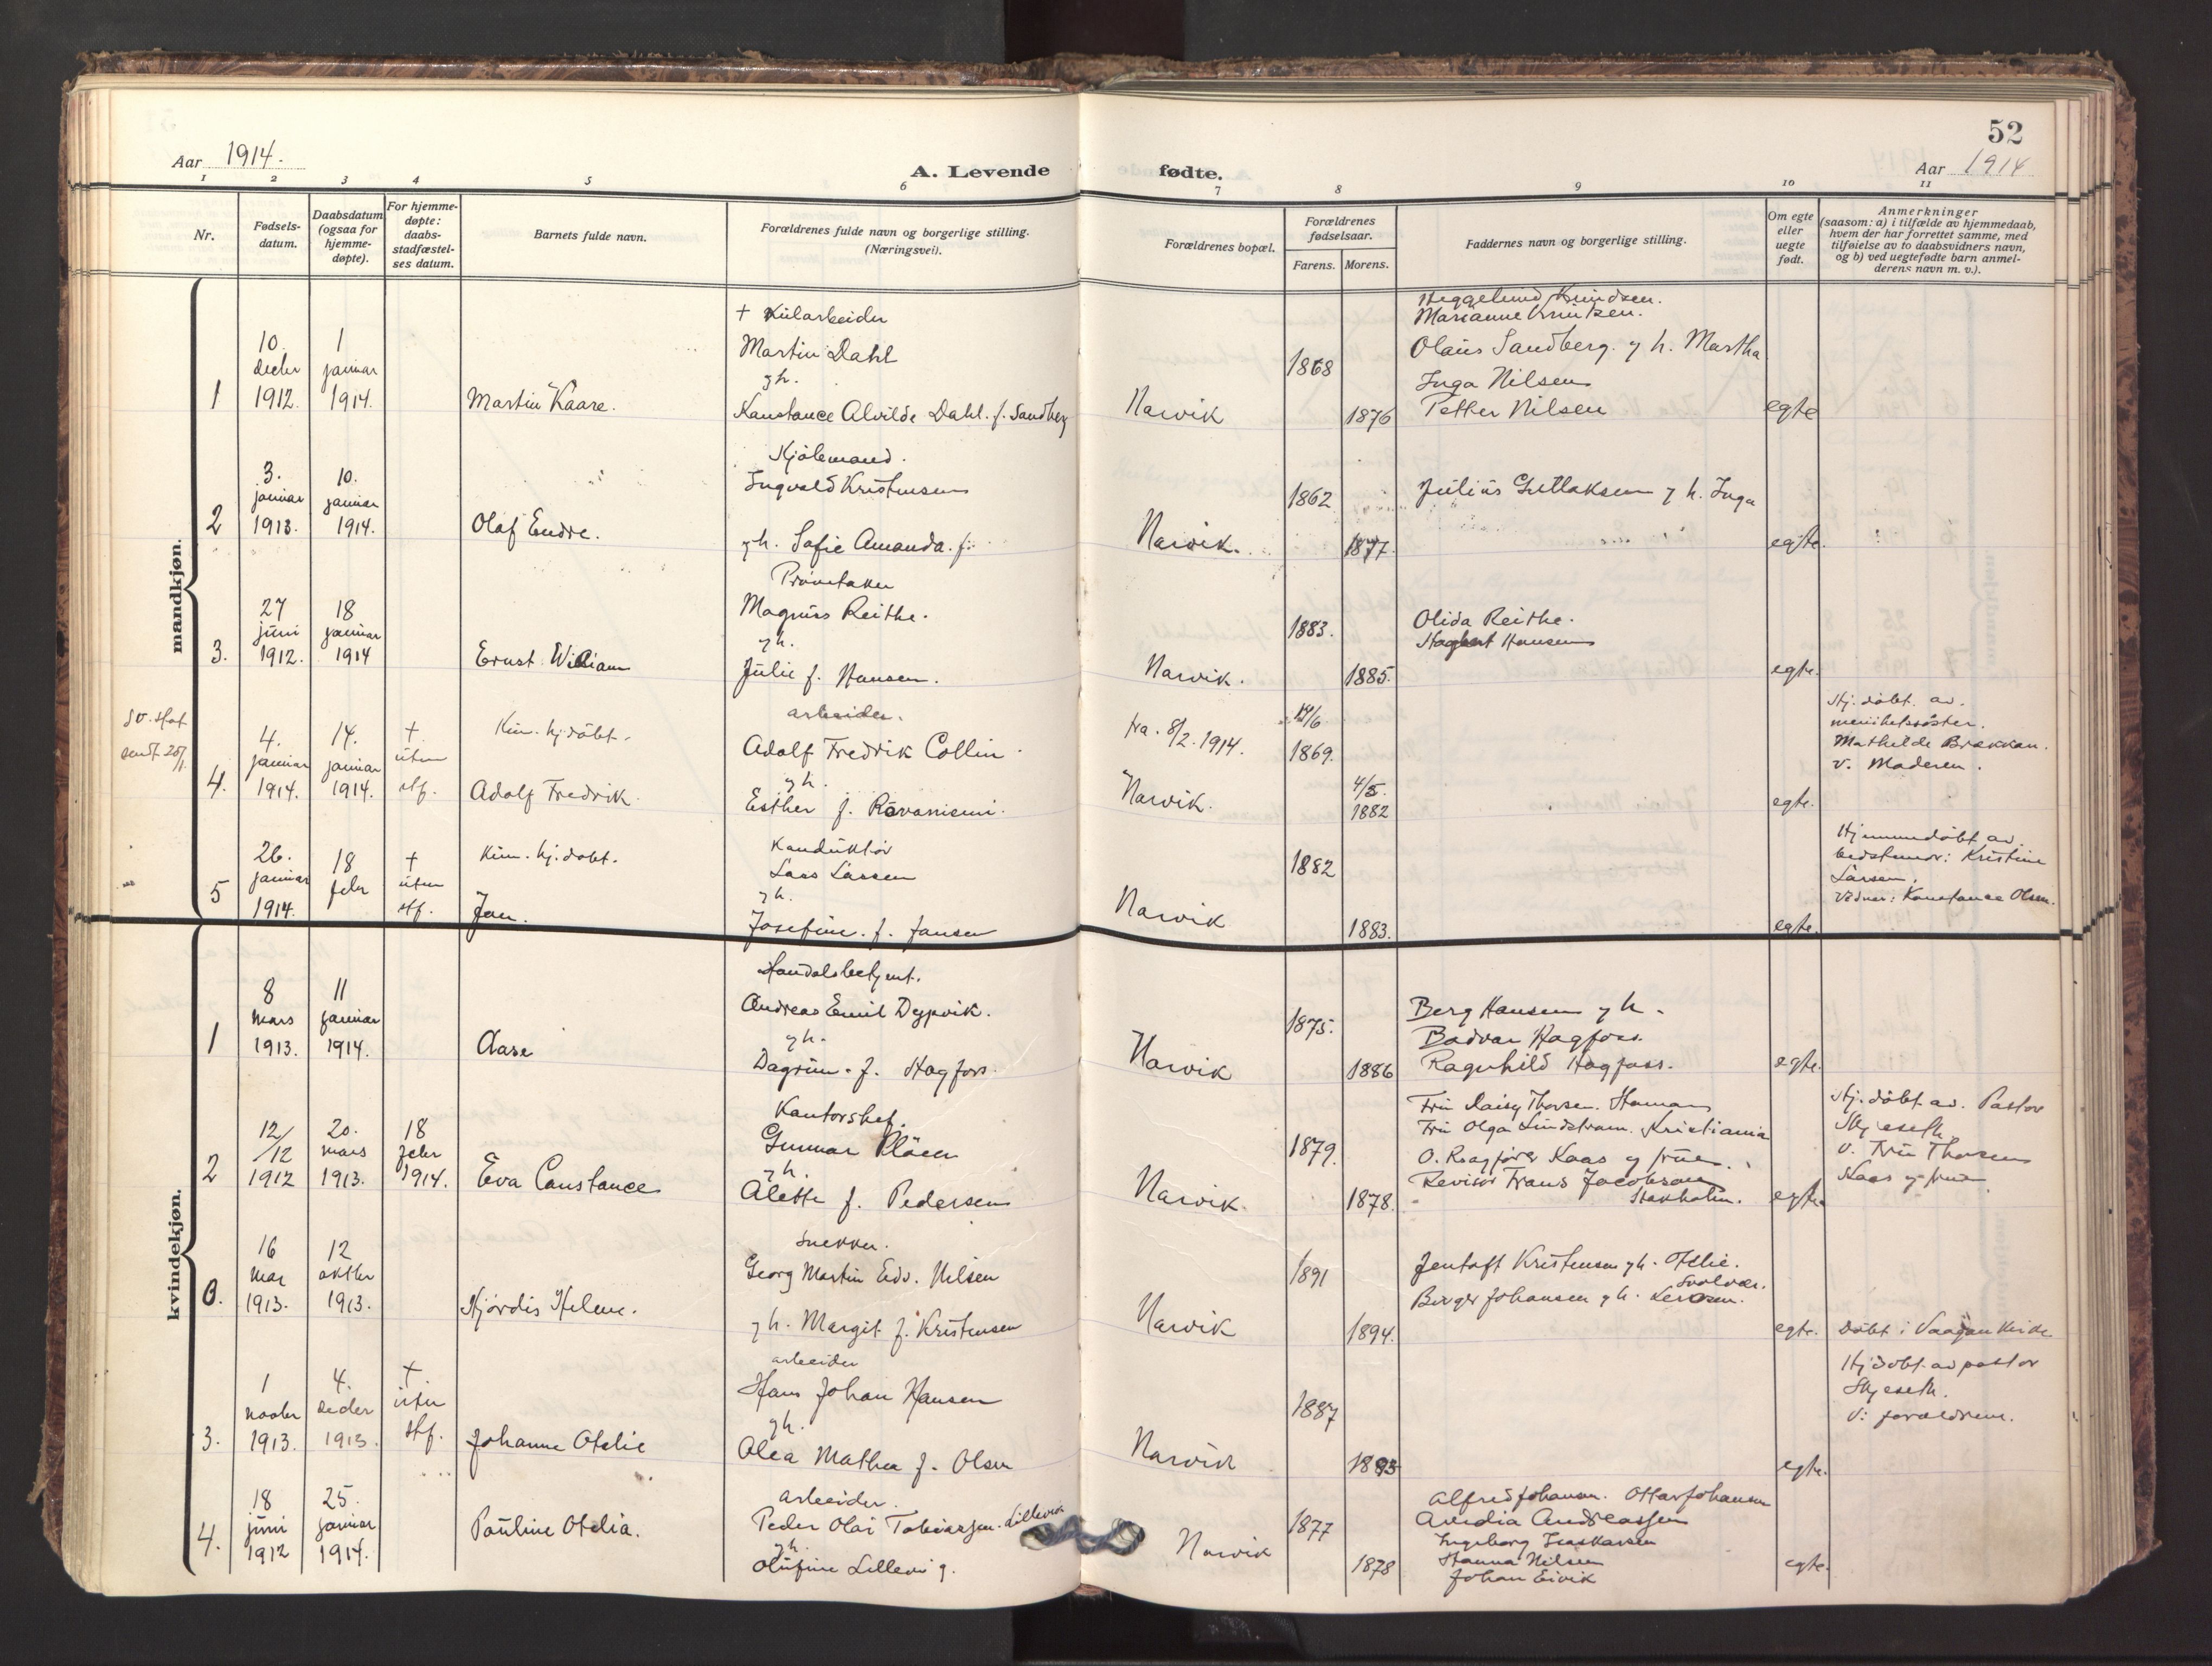 52
Aar 1914.
A. Levende
fødte.
Aar 1914
1 2 3 4 5 6 7 8 9 10 11
Nr.
Fødsels-
datum.
Daabsdatum
(ogsaa for
hjemme-
døpte).
For hjemme-
døpte:
daabs-
stadfæstel-
ses datum.
Barnets fulde navn.
Forældrenes fulde navn og borgerlige stilling.
(Næringsvei).
Forældrenes bopæl.
Forældrenes
fødselsaar.
Farens. Morens.
Faddernes navn og borgerlige stilling.
Om egte
eller
uegte
født.
Anmerkninger
(saasom: a) i tilfælde av hjemmedaab,
hvem der har forrettet samme, med
tilføielse av to daabsvidners navn,
og b) ved uegtefødte barn anmel-
derens navn m. v.).
mandkjøn.
1
10.
decbr
1912.
1
januar
1914.
Martin Kaare.
+ Kularbeider
Martin Dahl
g h.
Konstance Alvilde Dahl. f. Sandberg
Narvik
1868
1876
Heggelund Knudsen.
Marianne Knutsen.
Olaus Sandberg. g h. Martha
Inga Nilsen
Petter Nilsen
egte
2
3.
januar
1913.
10.
januar
1914.
Olaf Endre.
Kjølemand.
Ingvald Kristensen
g h. Sofie Amanda. f.
Narvik.
1862
1877.
Julius Gullaksen g h. Inga
egte.
3.
27
juni
1912.
18
januar
1914
Ernst William
Prøvetaker
Magnus Reithe.
g h.
Julie f. Hansen.
Narvik.
1883.
1885.
Olida Reithe.
Hagbart Hansen
egte.
sendt 20/1.
4.
4.
januar
1914.
14.
januar
1914.
+
uten
stf.
Kun. hj. døbt.
Adolf Fredrik
arbeider.
Adolf Fredrik Collin
g h.
Esther f. Rovaniemi.
fra. 8/2. 1914.
Narvik.
14/6.
1869.
4/5.
1882
egte.
Hj. døbt. av.
menihetssøster.
Mathilde Brækkan.
v. Moderen.
5
26.
januar
1914.
18
febr
+
uten
stf.
Kun. hj. døbt.
Jon.
Konduktør
Lars Larsen
g h.
Josefine. f. Jansen
Narvik
1882
1883.
egte.
Hjemmedøbt av.
bedstemor: Kristine
Larsen.
Vidner: Konstance Olsen.
kvindekjøn.
1
8
mars
1913.
11
januar
1914.
Aase
Handelsbetjent.
Andreas Emil Dypvik.
g h.
Dagrun. f. Hagfors.
Narvik
1875.
1886
Berg Hansen g h.
Bodvar Hagfoss.
Ragnhild Hagfoss.
egte.
2
12/
/12
1912
20.
mars
1913.
18
febr
1914.
Eva Constance
Kontorshef.
Gunnar Pløen
g h.
Alette f. Pedersen
Narvik.
1879.
1878.
Fru Daisy Thorsen. Hamar
Fru Olga Lindstrøm. Kristiania
O. Ragfører Kaas g frue.
Revisor Frans Jacobson
Stokholm.
egte.
Hj. døbt. av. Pastor
Skjeseth
v. Fru Thorsen
Kaas g frue
0.
16
mar
1913.
12
oktbr
1913.
Hjørdis Helene.
Snekker.
Georg Martin Edv. Nilsen
g h. Margit f. Kristensen
Narvik
1891
1894.
Jentoft Kristensen g h. Otelie.
Svolvær.
Birger Johansen g h.
egte.
Døbt i Vaagan Kirke
3.
1
novbr
1913.
4.
decbr
1913.
+.
uten
stf.
Johanne Otelie
arbeider
Hans Johan Hansen
g h.
Alea Mathea f. Olsen
Narvik
1887
1883
egte.
Hjdøbt. av pastor
Skjeseth.
v: forældrene.
4.
18
juni
1912
25.
januar
1914.
Pauline Otelia.
arbeider.
Peder Olai Tobiassen. Lillevik
g h.
Olufine Lillevig.
Narvik
1877
1878
Alfred Johansen. Ottar Johansen
Andreassen
Ingeborg Isaksen
Hanna Nilsen
Johan Eivik
egte.